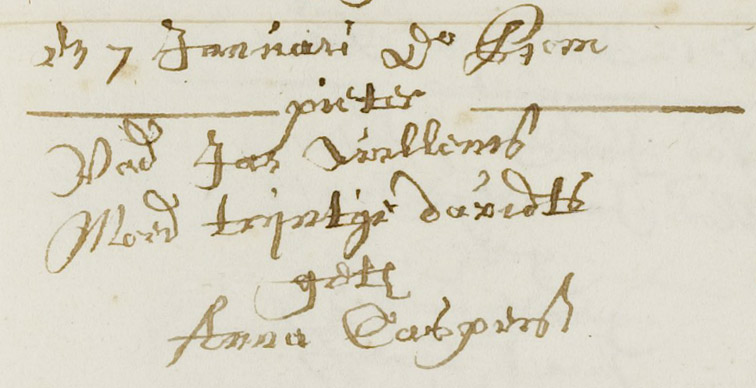 den 7 Januari Do Hem
pieter
Vad Jan Willems
Moed trijntje davidts
get
Anna Caspers